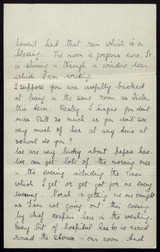 haven't had that rain which is a
blessing. The moon is gorgeous now, & it
is shining in through a window near
which I am writing.
I suppose you are awfully bucked
at being in the same room as
this term. Really I hope you don't
miss Stibb so much as you don't see
very much of her at any time at
school do you?
We are very lucky about papers here.
We can get lots of the morning ones
in the evening including the Times
which I get or get got for me every
evening. is getting me one tonight
as I'm not going out this evening.
My chief despair here is the washing.
Every bit of hospital has to be
round the our room and